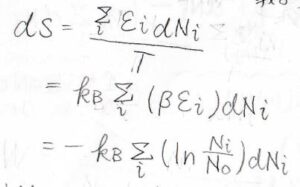 dS = Σᵢ εᵢ dNᵢ / T
= kB Σᵢ (βεᵢ) dNᵢ
= − kB Σᵢ (ln Nᵢ/N₀) dNᵢ